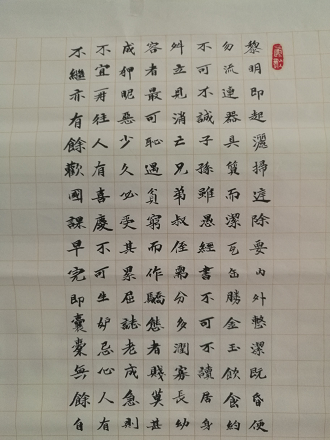 黎明即起灑掃庭除要內外整潔既昏便
勿流連器具質而潔瓦缶勝金玉飲食約
不可不誠子孫雖愚經書不可不讀居身
舛立見消亡兄弟叔侄需分多潤寡長幼
容者最可恥遇貧窮而作驕態者賤莫甚
成狎昵惡少久必受其累屈誌老成急則
不宜再往人有喜慶不可生妒忌心人有
不繼亦有餘歡國課早完即囊橐無餘自